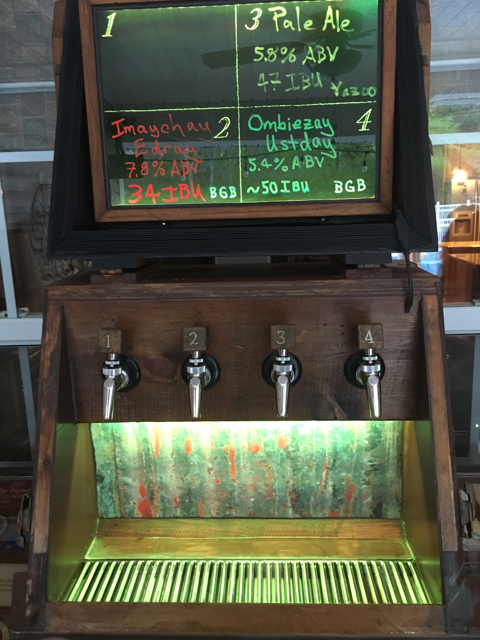 1
3 Pale Ale
5.8% ABV
47 IBU
Imaychau 2
Edray
7.8% ABV
34 IBU BGB
Ombiezay 4
Ustday
5.4% ABV
~50 IBU BGB
1 2 3 4